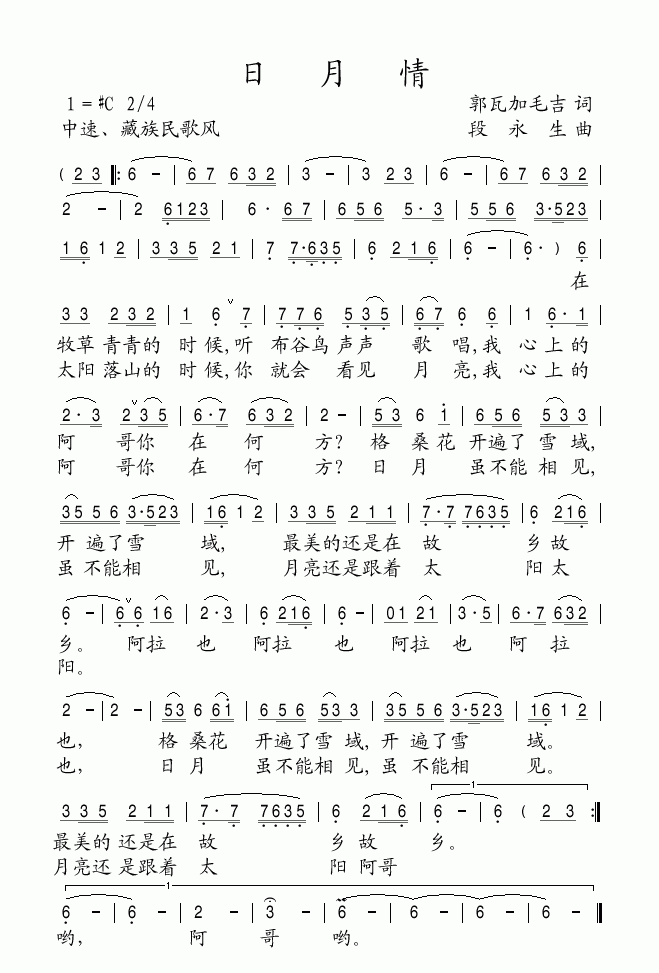 日 月 情
1 = #C 2/4 郭瓦加毛吉 词
中速、藏族民歌风 段 永 生 曲
( 2 3 ‖: 6 - | 6 7 6 3 2 | 3 - | 3 2 3 | 6 - | 6 7 6 3 2 |
2 - | 2 6 1 2 3 | 6 · 6 7 | 6 5 6 5 · 3 | 5 5 6 3 · 5 2 3 |
1 6 1 2 | 3 3 5 2 1 | 7 7 · 6 3 5 | 6 2 1 6 | 6 - | 6 · ) 6 |
在
3 3 2 3 2 | 1 6 ∨ 7 | 7 7 6 5 3 5 | 6 7 6 6 | 1 6 · 1 |
牧草 青青的 时 候,听 布谷鸟 声声 歌 唱,我 心 上的
太阳 落山的 时 候,你 就会 看见 月 亮,我 心 上的
2 · 3 2 ∨ 3 5 | 6 · 7 6 3 2 | 2 - | 5 3 6 1 | 6 5 6 5 3 3 |
阿 哥你 在 何 方? 格 桑花 开遍了 雪 域,
阿 哥你 在 何 方? 日 月 虽不能 相 见,
3 5 5 6 3 · 5 2 3 | 1 6 1 2 | 3 3 5 2 1 1 | 7 · 7 7 6 3 5 | 6 2 1 6 |
开 遍了雪 域, 最美的还是在 故 乡 故
虽 不能相 见, 月亮还是跟着 太 阳 太
6 - | 6 ∨ 6 1 6 | 2 · 3 | 6 2 1 6 | 6 - | 0 1 2 1 | 3 · 5 | 6 · 7 6 3 2 |
乡。 阿拉 也 阿拉 也 阿拉 也 阿 拉
阳。
2 - | 2 - | 5 3 6 6 1 | 6 5 6 5 3 3 | 3 5 5 6 3 · 5 2 3 | 1 6 1 2 |
也, 格 桑花 开遍了雪 域, 开 遍了雪 域。
也, 日 月 虽不能相 见, 虽 不能相 见。
1
3 3 5 2 1 1 | 7 · 7 7 6 3 5 | 6 2 1 6 | 6 - | 6 ( 2 3 :‖
最美的 还是在 故 乡 故 乡。
月亮还 是跟着 太 阳 阿哥
1
6 - | 6 - | 2 - | 3 - | 6 - | 6 - | 6 - ‖
哟, 阿 哥 哟。